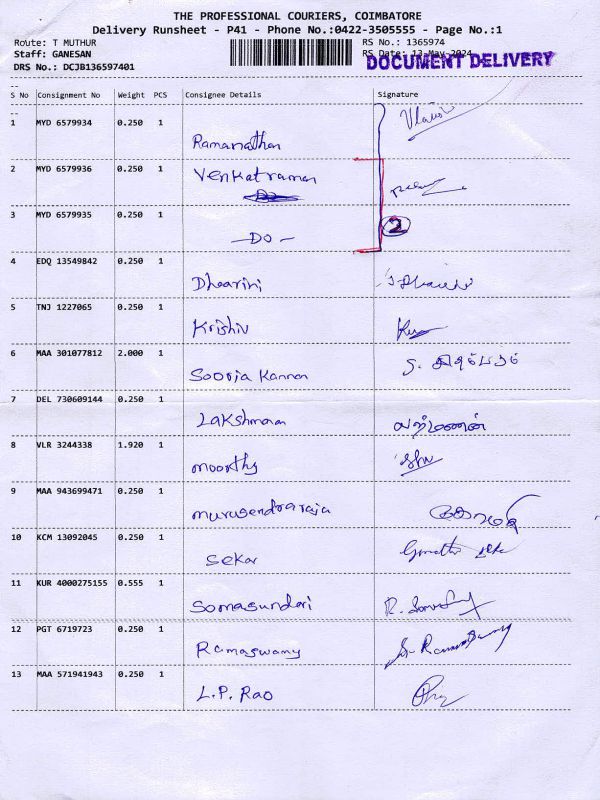 THE PROFESSIONAL COURIERS, COIMBATORE
Delivery Runsheet - P41 - Phone No.:0422-3505555 - Page No.:1
Route: T MUTHUR
Staff: GANESAN
DRS No.: DCJB136597401
RS No.: 1365974
RS Date: 13-May-2024
DOCUMENT DELIVERY
--
S No Consignment No Weight PCS Consignee Details Signature
--
1 MYD 6579934 0.250 1 Ramanathan
2 MYD 6579936 0.250 1 Venkatraman
3 MYD 6579935 0.250 1 -DO- 2
4 EDQ 13549842 0.250 1 Dhearini
5 TNJ 1227065 0.250 1 Krishiv
6 MAA 301077812 2.000 1 Sooria Kannan
7 DEL 730609144 0.250 1 Lakshmanan
8 VLR 3244338 1.920 1 moorthy
9 MAA 943699471 0.250 1 murugendraraja
10 KCM 13092045 0.250 1 Sekar
11 KUR 4000275155 0.555 1 Somasundari
12 PGT 6719723 0.250 1 Ramaswamy
13 MAA 571941943 0.250 1 L.P. Rao